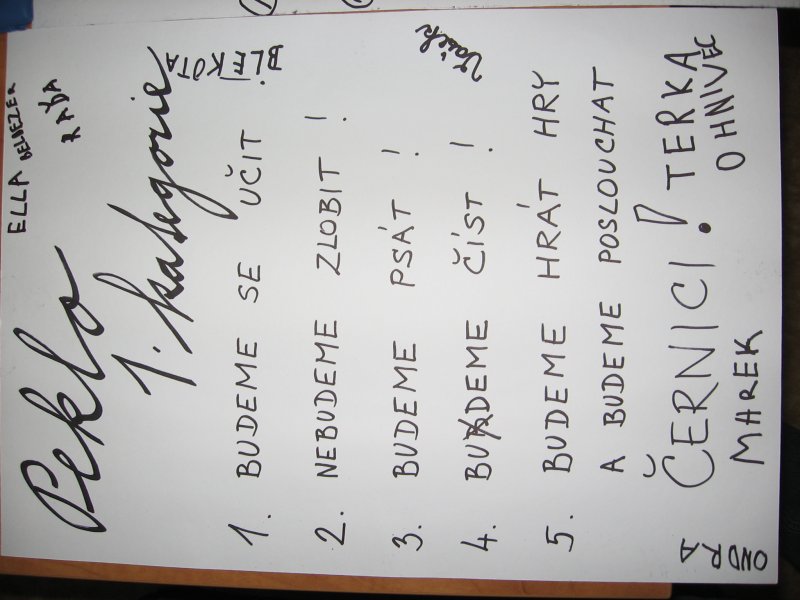 ELLA BELZEZER
RAĎA
Peklo
1. kategorie
BLEKOTA
Vašek
1. BUDEME SE UČIT
2. NEBUDEME ZLOBIT!
3. BUDEME PSÁT!
4. BUDEME ČÍST!
5. BUDEME HRÁT HRY
A BUDEME POSLOUCHAT
ČERNICI!
TERKA
OHNIVEC
MAREK
ONDRA